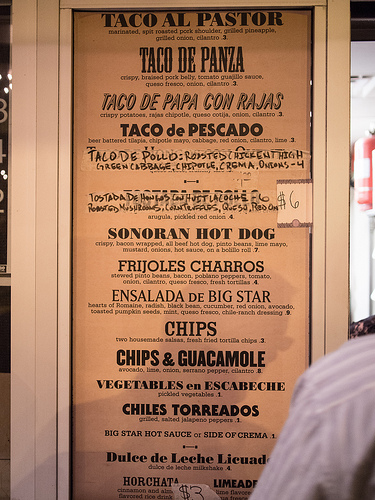 TACO AL PASTOR
marinated, spit roasted pork shoulder, grilled pineapple,
grilled onion, cilantro .3.
TACO DE PANZA
crispy, braised pork belly, tomato guajillo sauce,
queso fresco, onion, cilantro .3.
TACO DE PAPA CON RAJAS
crispy potatoes, rajas chipotle, queso cotija, onion, cilantro .3.
TACO de PESCADO
beer battered tilapia, chipotle mayo, cabbage, red onion, cilantro, lime .3.
TACO DE POLLO: ROASTED CHICKEN THIGH
GREEN CABBAGE, CHIPOTLE, CREMA, ONIONS - 4
TOSTADA DE HONGOS CON HUITLACOCHE - 6
ROASTED MUSHROOMS, CORN TRUFFLES, QUESO, RED ON
$6
arugula, pickled red onion .4.
SONORAN HOT DOG
crispy, bacon wrapped, all beef hot dog, pinto beans, lime mayo,
mustard, onions, hot sauce, on a bolillo roll .7.
FRIJOLES CHARROS
stewed pinto beans, bacon, poblano peppers, tomato,
onion, cilantro, queso fresco, fresh tortillas .4.
ENSALADA DE BIG STAR
hearts of Romaine, radish, black bean, cucumber, red onion, avocado,
toasted pumpkin seeds, mint, queso fresco, chile-ranch dressing .9.
CHIPS
two housemade salsas, fresh fried tortilla chips .3.
CHIPS & GUACAMOLE
avocado, lime, onion, serrano pepper, cilantro .8.
VEGETABLES en ESCABECHE
pickled vegetables .1.
CHILES TORREADOS
grilled, salted jalapeno peppers .1.
BIG STAR HOT SAUCE or SIDE OF CREMA .1.
Dulce de Leche Licuad
dulce de leche milkshake .4.
HORCHATA LIMEADE
cinnamon and alm lime flavore
flavored rice drink
$3